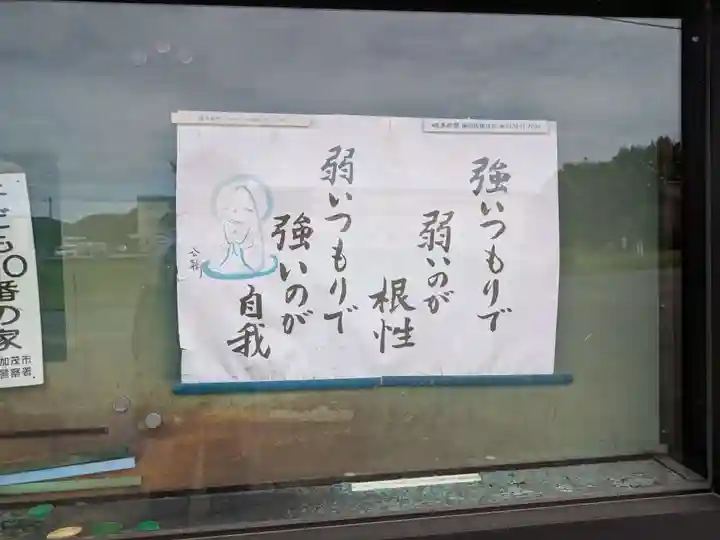 強いつもりで
弱いのが
根性
弱いつもりで
強いのが
自我
こども110番の家
加茂市
警察署